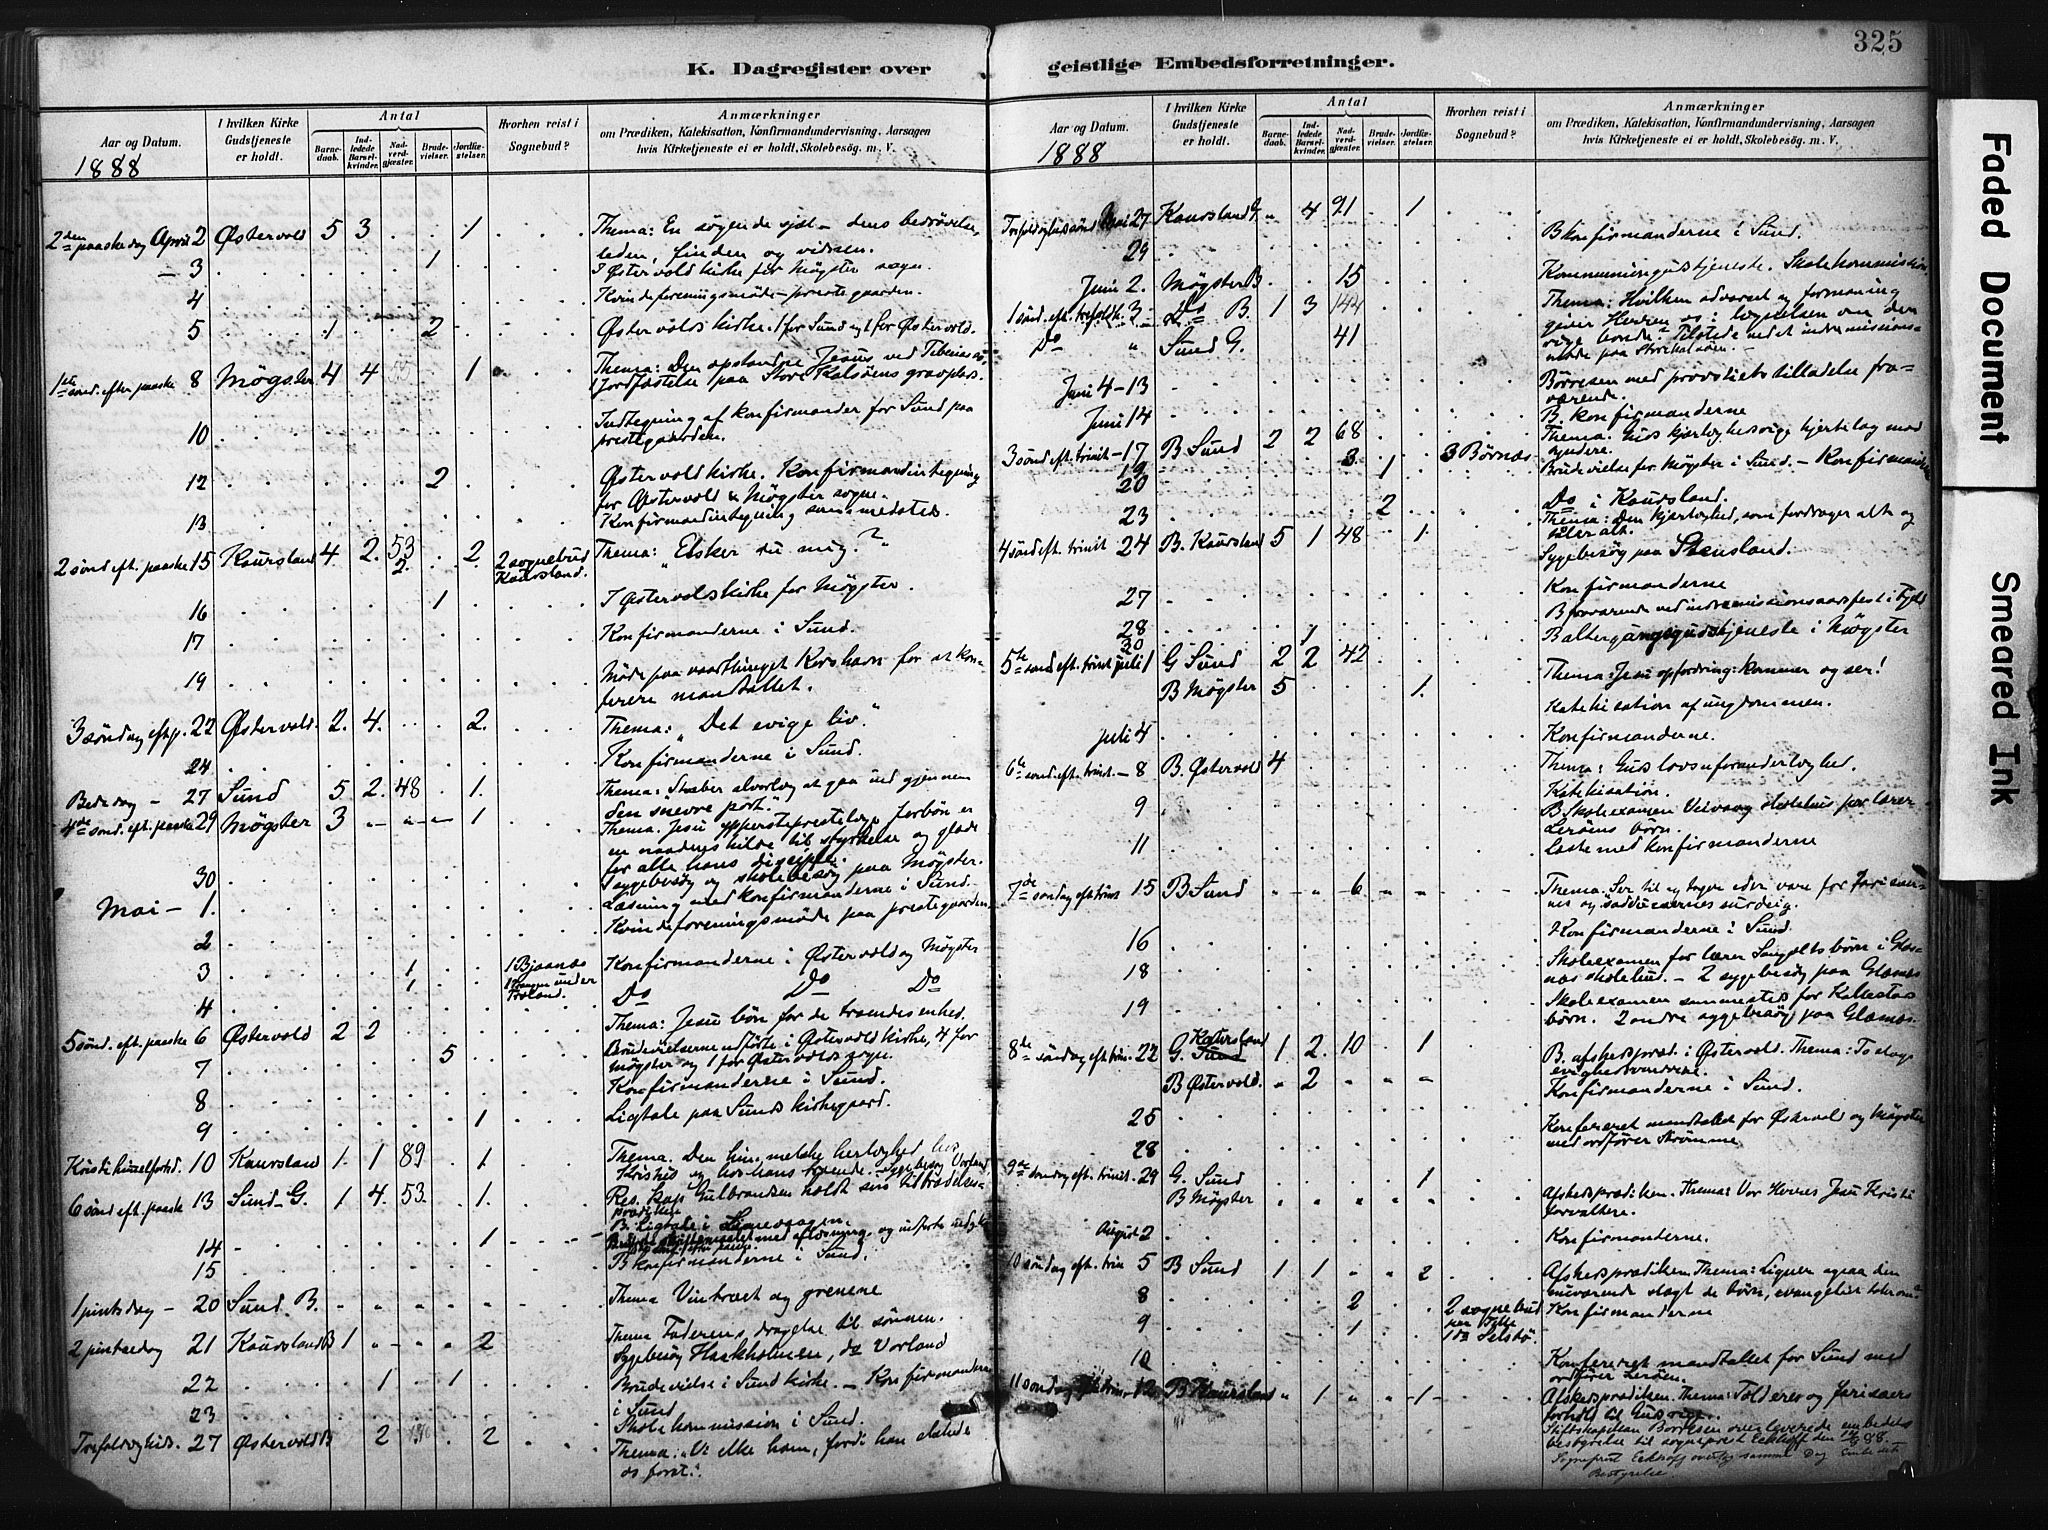 325
K. Dagregister over geistlige Embedsforretninger.
Aar og Datum.
1888
I hvilken Kirke Gudstjeneste er holdt.
Antal
Barnedaab.
Indledede Barselkvinder.
Nadverdgjester.
Brudevielser.
Jordfæstelser.
Hvorhen reist i Sognebud?
Anmærkninger
om Prædiken, Katekisation, Konfirmandundervisning, Aarsagen
hvis Kirketjeneste ei er holdt, Skolebesøg. m. V.
2den paaskedag April 2 Østervold 5 3 . . 1 Thema: En søgende sjæl – dens bedrøvelse,
leden, finden og vidsen.
– 3 1 I Østervold kirke for Møgster sogn.
4 Kvindeforeningsmøde – prestegaarden.
5 1 2 Østervolds kirke. 1 for Sund og 1 for Østervold.
1ste sønd. efter paaske 8 Møgster 4 4 1 Thema: Den opstandne Jesus ved Tiberias sø,
1 Jordfæstelse paa Store Kalsøens gravplads.
10 Indtegning af konfirmander for Sund paa
prestegaarden.
12 2 Østervold kirke. Konfirmandintegning
for Østervold & Møgster sogne.
13 Konfirmandintegning sammesteds.
2 sønd. eft. paaske 15 Kaursland 4 2 53 2 2 sognebud Thema: "Elsker du mig?"
2. Kaursland.
16 1 I Østervolds kirke for Møgster.
17 Konfirmanderne i Sund.
19 Møde paa vaarthinget Korshavn for at kon-
ferere mandtallet.
3 søndag eft p. 22 Østervold 2. 4. 2. Thema: "Det evige liv."
24 Konfirmanderne i Sund.
Bededag – 27 Sund 5 2. 48 1. Thema: Stræber alvorlig at gaa ind gjennem
den snevre port."
4de sønd. eft. paaske 29 Møgster 3 – – – 1 Thema. Jesu ypperstepresteli­ge forbøn er
en naadens kilde til styrkelse og glæde
for alle hans disciple.
30 Sygebesøg og skolebesøg paa Møgster.
Mai – 1. Læsning med konfirmanderne i Sund.
2 Kvindeforeningsmøde paa prestegaarden
3 1 1 Bjaanæs Konfirmanderne i Østervold og Møgster
4 1 Do Do Do
5 sønd. eft. paaske 6 Østervold 2 2 Thema: Jesu bøn for de troendes enhed.
7 5 Brudevielserne udførte i Østervold kirke, 4 for
Møgster og 1 for Østervolds sogn.
8 Konfirmanderne i Sund.
9 1 Ligtale paa Sunds kirkegaard.
Kristi himmelfartsd. 10 Kaursland 1. 1 89 1. Thema. Den himmelske herlighed hos
Kristus og hos hans troende. – Sygebesøg Vorland.
6 sønd eft. paaske 13 Sund – G. 1 4. 53. 1. Res. kap Gulbrandsen holdt sin tiltrædelses-
prædiken
14 – 1 B. Ligtale i
15 B konfirmanderne i Sund.
1 pintsdag – 20 Sund. B. Thema Vintræet og grenene
2 pintsedag 21 Kaursland B 1 2 Thema Faderens dragelse til sønnen.
Sygebesøg Haakholmen, do Vorland
22 1 – 1 Brudevielse i Sund kirke. – Konfirmanderne
i Sund
23 Skolekommission i Sund.
Trefoldighds. 27 Østervold B 2 2 Thema: "Vi elke ham, fordi han elskede
os først".
Aar og Datum.
1888
I hvilken Kirke Gudstjeneste er holdt.
Antal
Barnedaab.
Indledede Barselkvinder.
Nadverdgjester.
Brudevielser.
Jordfæstelser.
Hvorhen reist i Sognebud?
Anmærkninger
om Prædiken, Katekisation, Konfirmandundervisning, Aarsagen
hvis Kirketjeneste ei er holdt, Skolebesøg. m. V.
Trefoldighedssønd Mai 27 Kaursland G. " 4 91 1
29 B konfirmanderne i Sund.
Juni 2. Møgster B. 15 Kommuniongudstjeneste. Skolekommission
1 sønd. eft. trefoldh. 3 – Do B. 1 3 144 Thema: Hvilken advarsel og formaning
giver Herren os i lignelsen om den
Do " Sund G. 41 rige bonde. Tilstede ved et indremissions-
møde paa
Juni 4 – 13 Børresen med provstiets tilladelse fra-
værende.
Juni 14 B konfirmanderne
3 sønd eft. trinit – 17 B Sund 2 2 68 Thema. Guds kjærlighedsrige hjertelag mod
syndere.
19 3 1 3 Børnæs Brudevielse for Møgster i Sund. – Konfirmanderne
20
23 2 Do i Kaursland.
4 sønd eft. trinit 24 B. Kaursland 5 1 48 1 Thema: Den kjærlighed, som fordrager alt og
taaler alt.
Sygebesøg paa Stensland.
27 Konfirmanderne
28 B fraværende ved indremissionsaarsfest i
30 1 B altergangsgudstjeneste i Møgster
5te sønd eft. trinit juli 1 G Sund 2 2 42
B Møgster 5 1. Thema: Jesu opfordring: kommer og ser!
Katekisation af ungdommen.
Juli 4 Konfirmanderne.
6te sønd eft. trinit. – 8 B. Østervold 4 Thema: Guds lovs uforanderlighed.
Katekisation.
9 B. Skoleexamen Vilvaag skolehus for lærer
Lerøens børn.
11 Læste med konfirmanderne
7de søndag eft trinit 15 B Sund " – " – 6 Thema. Ser til og tager eder vare for farisæer-
nes og sadducæernes surdeig.
16 Konfirmanderne i Sund.
18 Skoleexamen for lærer Sangolts børn i Glæs-
næs skolehus. – 2 sygebesøg paa Glæsnæs
19 Skoleexamen sammesteds for Kallestads
børn. 2 andre sygebesøg paa Glæsnæs.
8de søndag eft trin. 22 G. Kaursland 1 2. 10 1 B. afskedspræd. i Østervold. Thema: To slags
evighedsvandrere.
B Østervold. " 2 " " "
25 Konfirmanderne i Sund.
28 Konfereret mandtallet for Østervold og Møgster
med ordfører Strømme
9de søndag eft trinit. 29 G. Sund 1
B Møgster Afskedsprædiken. Thema: Vor Herres Jesu Kristi
forvaltere.
August 2 Konfirmanderne.
10 søndag eft. trin 5 B Sund 1 1 " " 2 Afskedsprædiken. Thema: Ligner ogsaa den
nuværende slægt de børn, evangeliet taler om?
8 2 2 sognebud Konfirmanderne
9 1 1 B Selstø.
10 Konfereret mandtallet for Sund med
ordfører Lerøen.
11 sønd 12 B Kaursland " 1 " " 1 Afskedsprædiken. Thema: Tolderes og farisæers
forhold til Guds rige.
Stiftskapellan Børresen overleverede embedets
bestyrelse til sogneprest Eckhoff den 14/8 88. –
Sogneprest Eckhoff overtog samme Dag Embedets
Bestyrelse
Faded Document
Smeared Ink